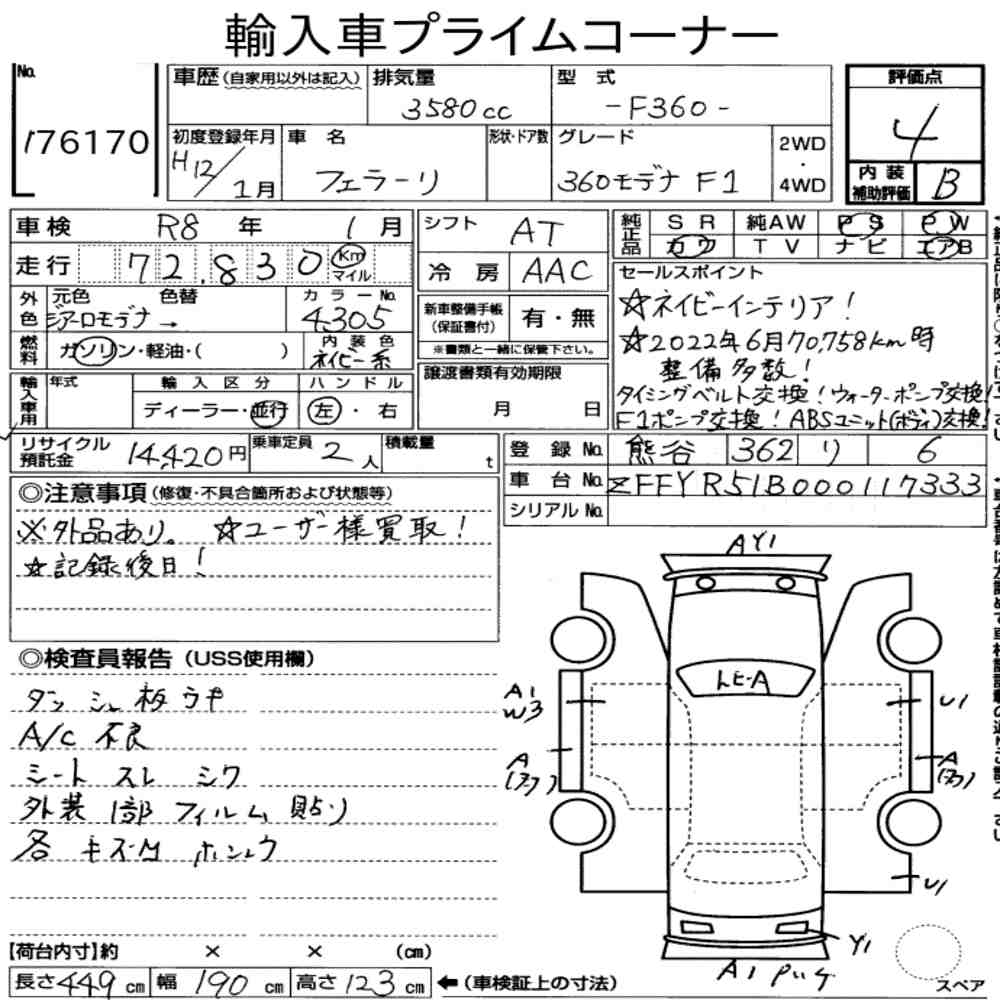 輸入車プライムコーナー
No.
176170
車歴(自家用以外は記入)
排気量
3580cc
型式
-F360-
評価点
4
初度登録年月
H12/1月
車名
フェラーリ
形状・ドア数
グレード
360モデナ F1
2WD
・
4WD
内装
補助評価
B
車検 R8年 1月
シフト AT
純正品
SR 純AW PS PW
カワ TV ナビ エアB
走行 72.830 Km マイル
冷房 AAC
セールスポイント
☆ネイビーインテリア!
☆2022年6月70,758km時
整備多数!
タイミングベルト交換!ウォーターポンプ交換!
F1ポンプ交換!ABSユニット(ボディ)交換!
外色
元色 色替 カラーNo.
ジアーロモデナ→ 4305
新車整備手帳
(保証書付)
有・無
※書類と一緒に保管下さい。
燃料
ガソリン・軽油・( )
内装色
ネイビー系
譲渡書類有効期限
月 日
輸入車用
年式
輸入区分
ハンドル
ディーラー・並行
左・右
リサイクル
預託金
14,420円
乗車定員
2人
積載量
t
登録No. 熊谷 362 リ 6
車台No. ZFFYR51B000117333
シリアルNo.
◎注意事項(修復・不具合箇所および状態等)
※外品あり。 ☆ユーザー様買取!
☆記録後日!
◎検査員報告(USS使用欄)
ダッシュ板ウキ
A/C 不良
シート スレ シワ
外装 1部 フィルム貼り
各 キズ
AY1
A1
W3
U1
A
A
U1
Y1
A1
スペア
【荷台内寸】約 × × (cm)
長さ449cm 幅190cm 高さ123cm ←(車検証上の寸法)